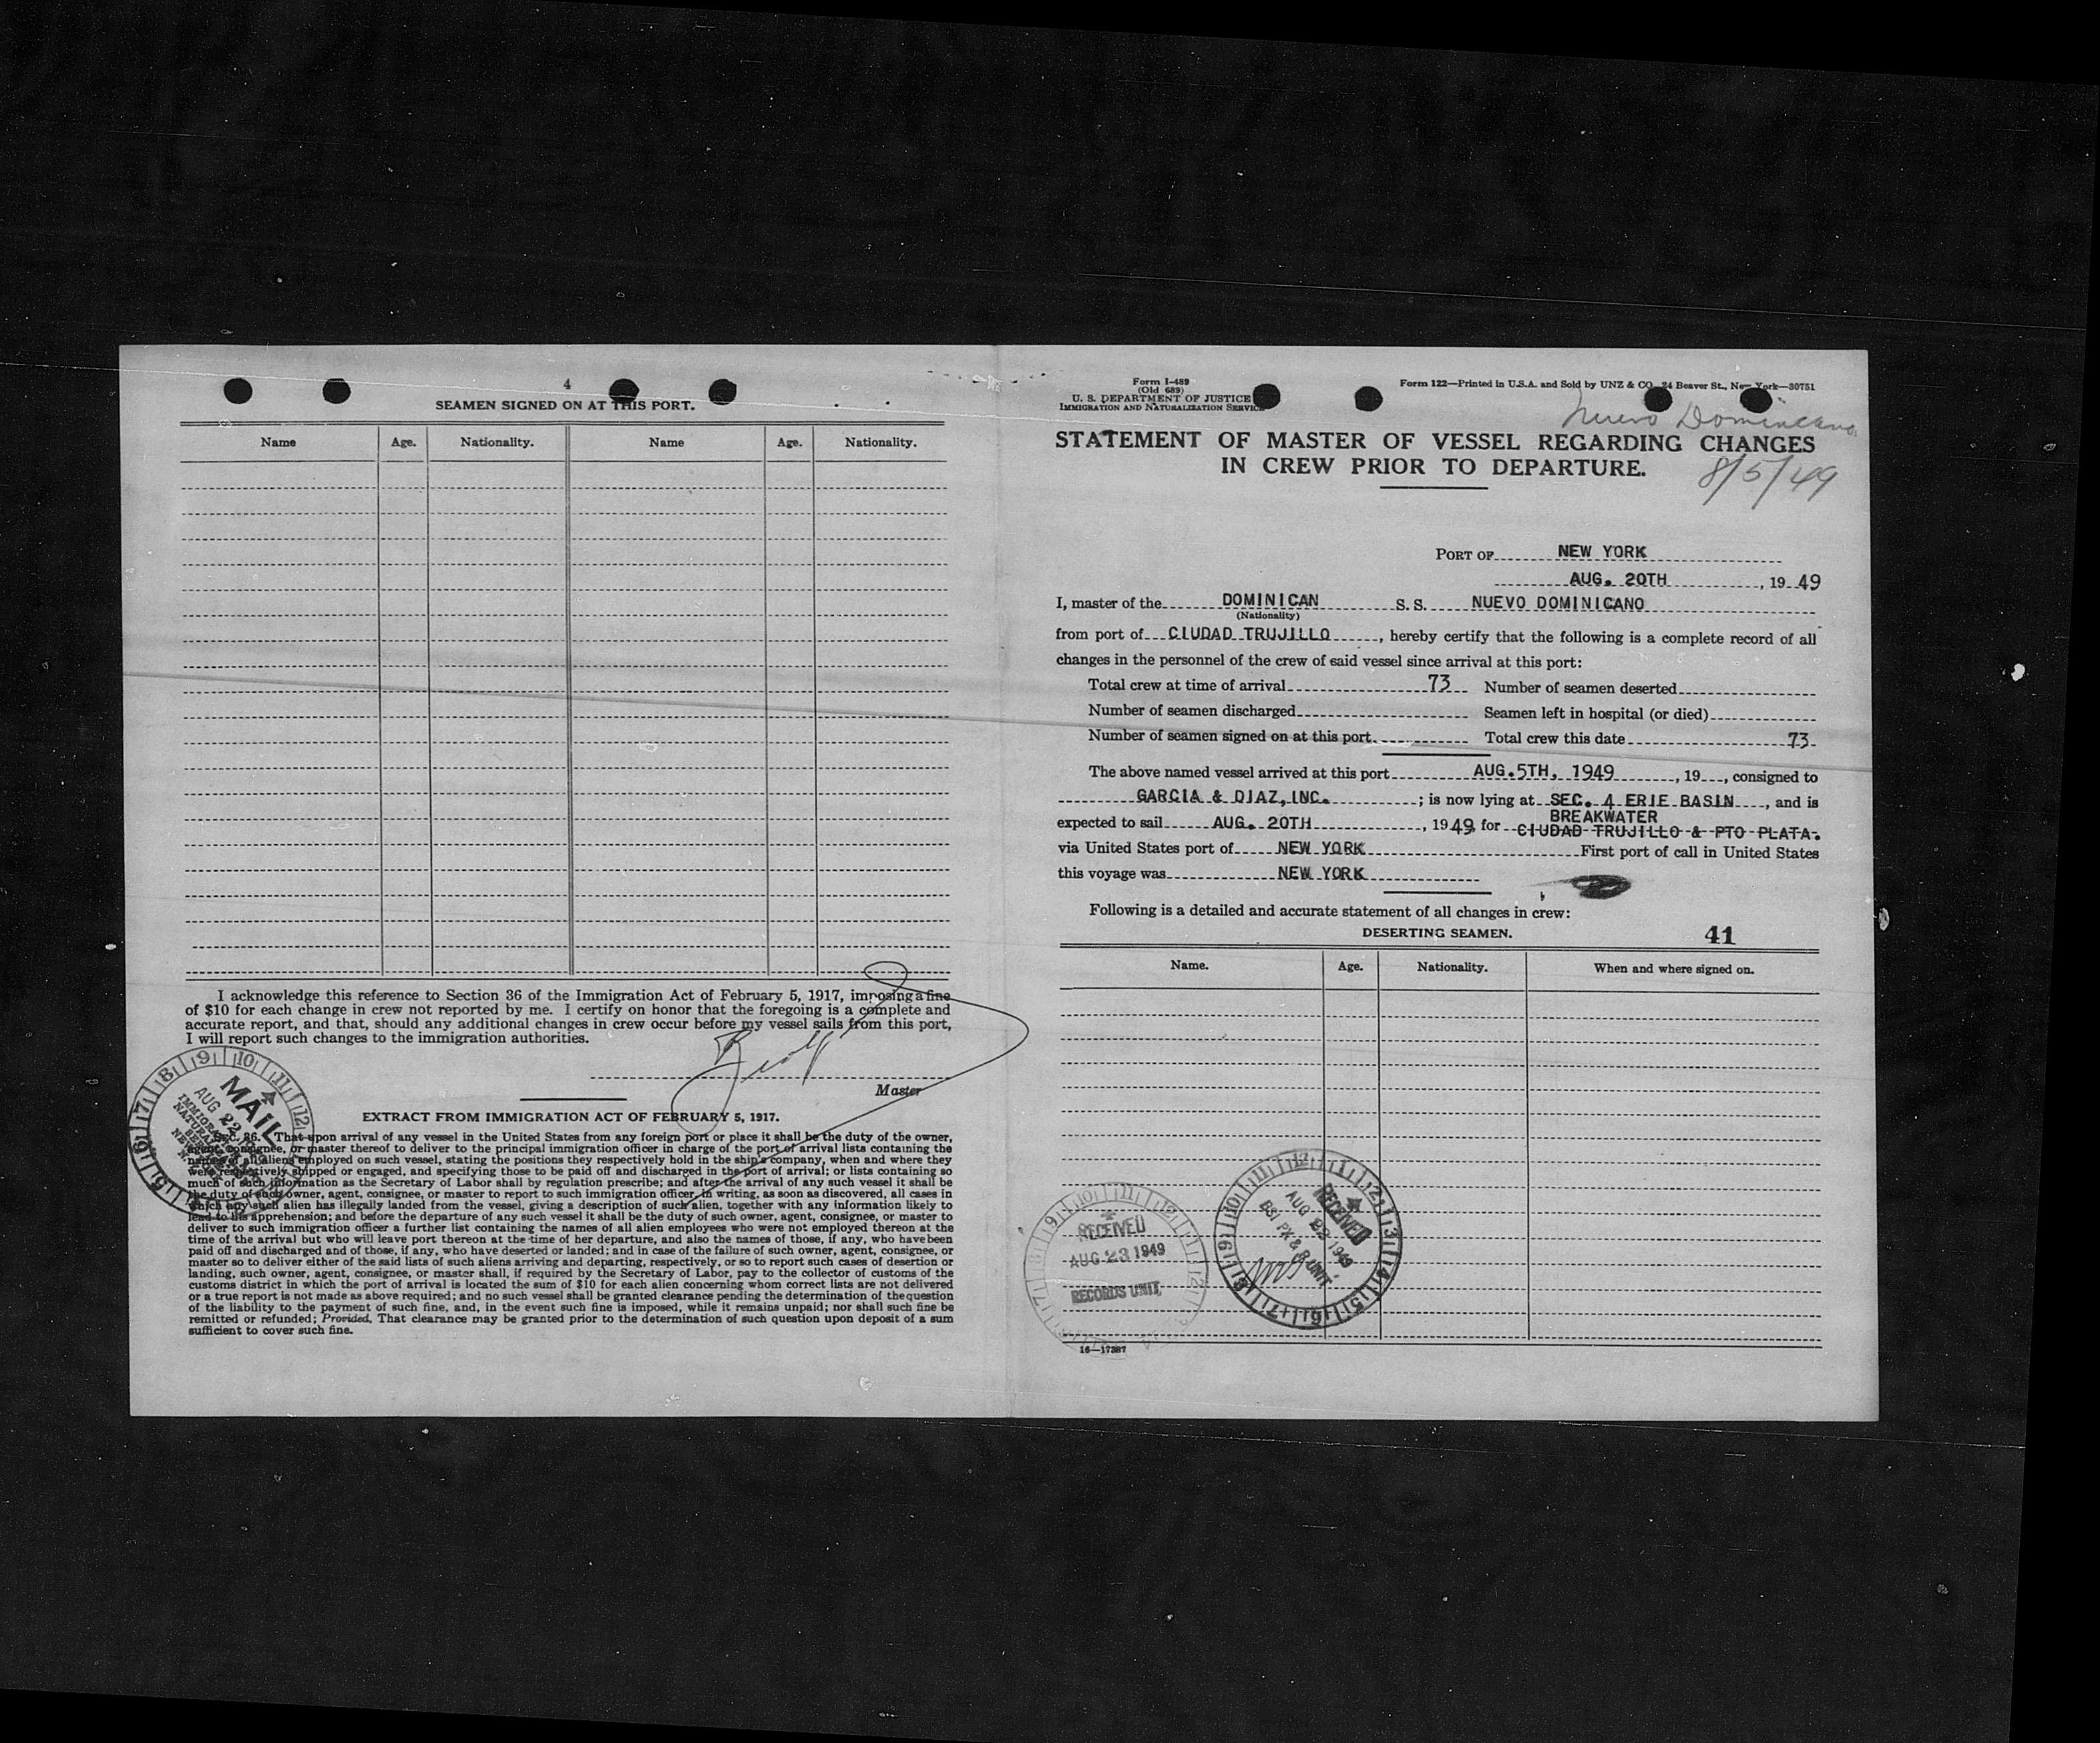 4
SEAMEN SIGNED ON AT THIS PORT.
Name Age. Nationality. Name Age. Nationality.
I acknowledge this reference to Section 36 of the Immigration Act of February 5, 1917, imposing a fine
of $10 for each change in crew not reported by me. I certify on honor that the foregoing is a complete and
accurate report, and that, should any additional changes in crew occur before my vessel sails from this port,
I will report such changes to the immigration authorities.
Master
EXTRACT FROM IMMIGRATION ACT OF FEBRUARY 5, 1917.
Sec. 36. That upon arrival of any vessel in the United States from any foreign port or place it shall be the duty of the owner,
agent, consignee, or master thereof to deliver to the principal immigration officer in charge of the port of arrival lists containing the
names of all aliens employed on such vessel, stating the positions they respectively hold in the ship's company, when and where they
were respectively shipped or engaged, and specifying those to be paid off and discharged in the port of arrival; or lists containing so
much of such information as the Secretary of Labor shall by regulation prescribe; and after the arrival of any such vessel it shall be
the duty of such owner, agent, consignee, or master to report to such immigration officer, in writing, as soon as discovered, all cases in
which any such alien has illegally landed from the vessel, giving a description of such alien, together with any information likely to
lead to his apprehension; and before the departure of any such vessel it shall be the duty of such owner, agent, consignee, or master to
deliver to such immigration officer a further list containing the names of all alien employees who were not employed thereon at the
time of the arrival but who will leave port thereon at the time of her departure, and also the names of those, if any, who have been
paid off and discharged and of those, if any, who have deserted or landed; and in case of the failure of such owner, agent, consignee, or
master so to deliver either of the said lists of such aliens arriving and departing, respectively, or so to report such cases of desertion or
landing, such owner, agent, consignee, or master shall, if required by the Secretary of Labor, pay to the collector of customs of the
customs district in which the port of arrival is located the sum of $10 for each alien concerning whom correct lists are not delivered
or a true report is not made as above required; and no such vessel shall be granted clearance pending the determination of the question
of the liability to the payment of such fine, and, in the event such fine is imposed, while it remains unpaid; nor shall such fine be
remitted or refunded; Provided, That clearance may be granted prior to the determination of such question upon deposit of a sum
sufficient to cover such fine.
MAIL
AUG 22
Form I-489
(Old 689)
U. S. DEPARTMENT OF JUSTICE
IMMIGRATION AND NATURALIZATION SERVICE
Form 122—Printed in U.S.A. and Sold by UNZ & CO., 24 Beaver St., New York—30751
Nuevo Dominicano
STATEMENT OF MASTER OF VESSEL REGARDING CHANGES
IN CREW PRIOR TO DEPARTURE.
8/5/49
PORT OF NEW YORK
AUG. 20TH, 19 49
I, master of the DOMINICAN S. S. NUEVO DOMINICANO
(Nationality)
from port of CIUDAD TRUJILLO, hereby certify that the following is a complete record of all
changes in the personnel of the crew of said vessel since arrival at this port:
Total crew at time of arrival 73 Number of seamen deserted
Number of seamen discharged Seamen left in hospital (or died)
Number of seamen signed on at this port Total crew this date 73
The above named vessel arrived at this port AUG.5TH, 1949, 19 , consigned to
GARCIA & DIAZ,INC. ; is now lying at SEC. 4 ERIE BASIN, and is
BREAKWATER
expected to sail AUG. 20TH, 1949, for CIUDAD TRUJILLO & PTO PLATA.
via United States port of NEW YORK First port of call in United States
this voyage was NEW YORK
Following is a detailed and accurate statement of all changes in crew:
DESERTING SEAMEN. 41
Name. Age. Nationality. When and where signed on.
RECEIVED
AUG 23 1949
RECORDS UNIT
RECEIVED
AUG 22 1949
16—17387